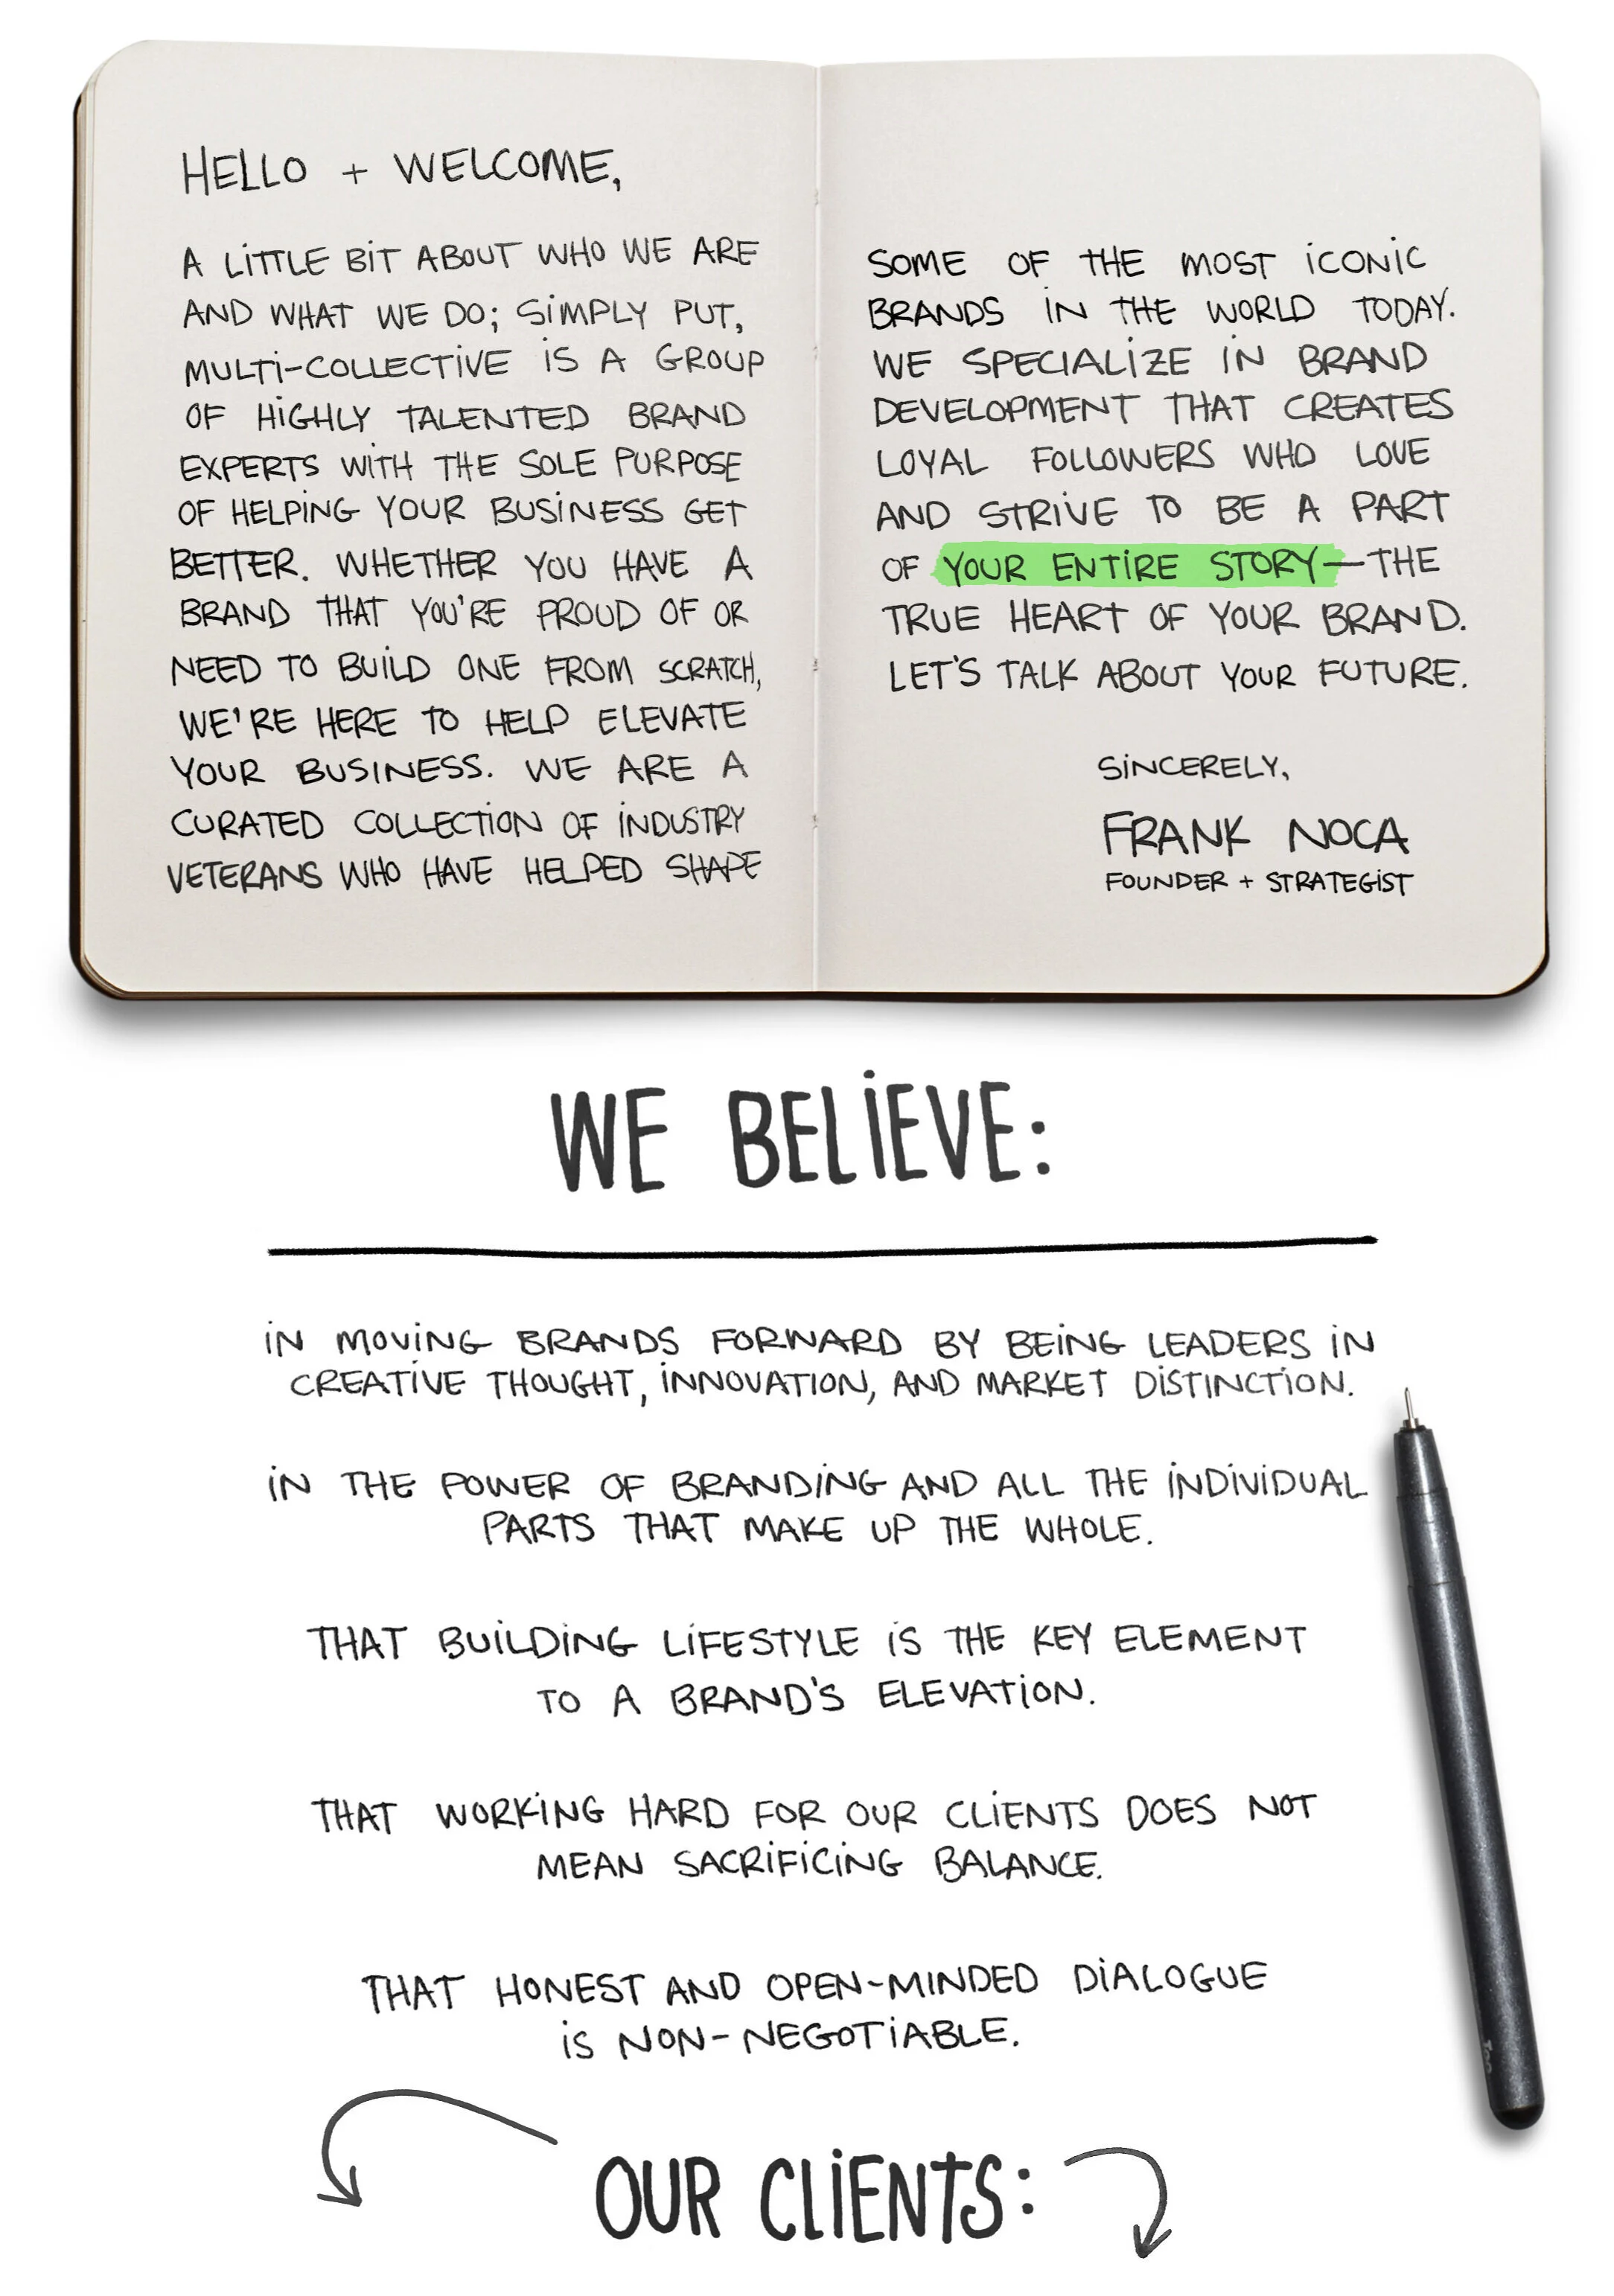 HELLO + WELCOME,
A LITTLE BIT ABOUT WHO WE ARE
AND WHAT WE DO; SIMPLY PUT,
MULTI-COLLECTIVE IS A GROUP
OF HIGHLY TALENTED BRAND
EXPERTS WITH THE SOLE PURPOSE
OF HELPING YOUR BUSINESS GET
BETTER. WHETHER YOU HAVE A
BRAND THAT YOU'RE PROUD OF OR
NEED TO BUILD ONE FROM SCRATCH,
WE'RE HERE TO HELP ELEVATE
YOUR BUSINESS. WE ARE A
CURATED COLLECTION OF INDUSTRY
VETERANS WHO HAVE HELPED SHAPE
SOME OF THE MOST ICONIC
BRANDS IN THE WORLD TODAY.
WE SPECIALIZE IN BRAND
DEVELOPMENT THAT CREATES
LOYAL FOLLOWERS WHO LOVE
AND STRIVE TO BE A PART
OF YOUR ENTIRE STORY—THE
TRUE HEART OF YOUR BRAND.
LET'S TALK ABOUT YOUR FUTURE.
SINCERELY,
FRANK NOCA
FOUNDER + STRATEGIST
WE BELIEVE:
IN MOVING BRANDS FORWARD BY BEING LEADERS IN
CREATIVE THOUGHT, INNOVATION, AND MARKET DISTINCTION.
IN THE POWER OF BRANDING AND ALL THE INDIVIDUAL
PARTS THAT MAKE UP THE WHOLE.
THAT BUILDING LIFESTYLE IS THE KEY ELEMENT
TO A BRAND'S ELEVATION.
THAT WORKING HARD FOR OUR CLIENTS DOES NOT
MEAN SACRIFICING BALANCE.
THAT HONEST AND OPEN-MINDED DIALOGUE
IS NON-NEGOTIABLE.
OUR CLIENTS: